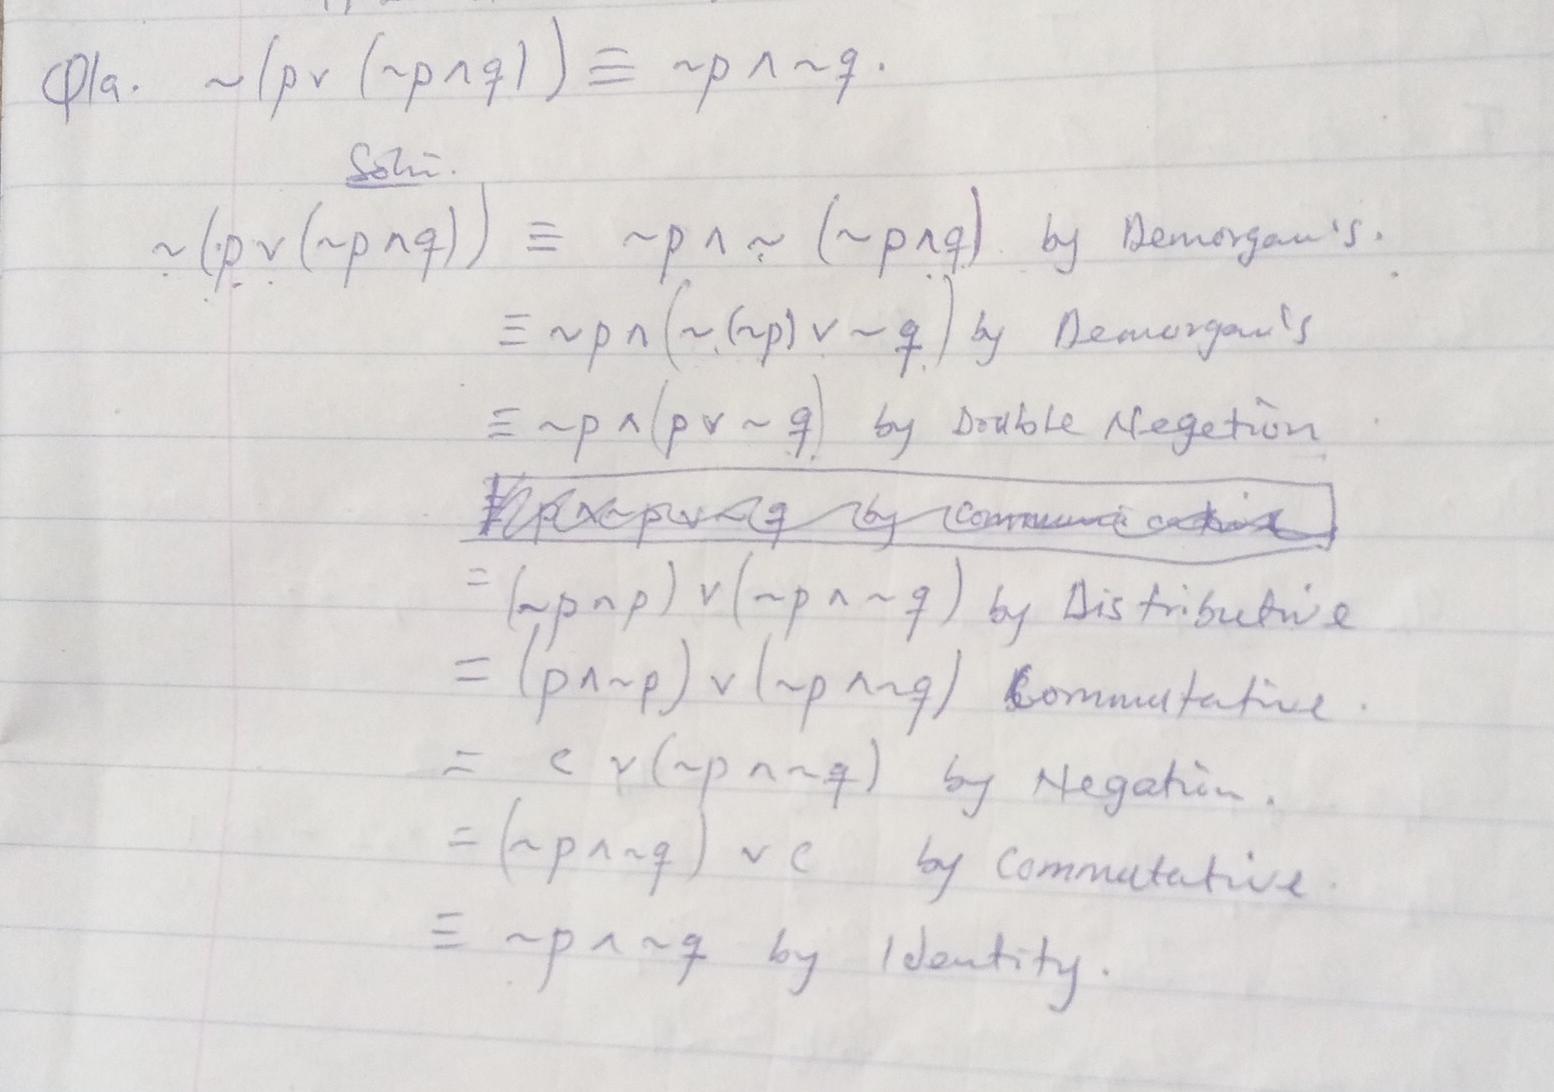 Q1a. ~(p∨(~p∧q))≡ ~p∧~q.
Soln.
~(p∨(~p∧q)) ≡ ~p∧~(~p∧q) by Demorgan's.
≡ ~p∧(~(~p)∨~q) by Demorgan's
≡ ~p∧(p∨~q) by Double Negetion
= (~p∧p)∨(~p∧~q) by Distributive
= (p∧~p)∨(~p∧~q) Commutative.
= c∨(~p∧~q) by Negation.
= (~p∧~q)∨c by Commutative.
≡ ~p∧~q by Identity.